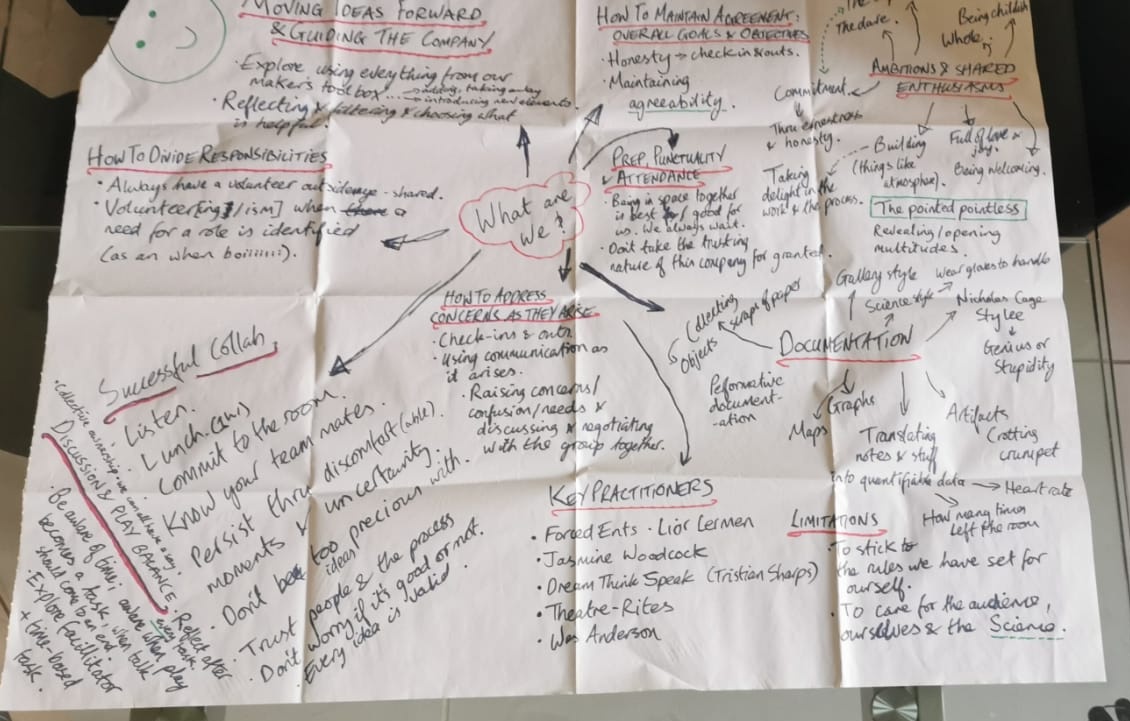 MOVING IDEAS FORWARD
& GUIDING THE COMPANY
• Explore using everything from our
makers toolbox... → adding, taking away
→ introducing new elements.
• Reflecting & filtering & choosing what
is helpful.
HOW TO MAINTAIN AGREEMENT:
OVERALL GOALS & OBJECTIVES
• Honesty → check in & outs.
• Maintaining
agreeability.
The dare.
Being childish
Whole.
AMBITIONS & SHARED
ENTHUSIASMS
Commitment.
Thru earnestness
& honesty.
Building
(things like
atmosphere).
Full of love &
joy.
Being welcoming.
Taking
delight in the
work & the process.
The pointed pointless
Revealing/opening
multitudes.
HOW TO DIVIDE RESPONSIBILITIES
• Always have a volunteer outside eye - shared.
• Volunteer[ing/ism] when a
need for a role is identified
(as an when boiiiiiii).
What are
We?
PREP, PUNCTUALITY
& ATTENDANCE
• Being in space together
is best for/good for
us. We always wait.
• Don't take the trusting
nature of this company for granted.
HOW TO ADDRESS
CONCERNS AS THEY ARISE
• Check-ins & outs.
• Using communication as
it arises.
• Raising concerns/
confusion/needs &
discussing & negotiating
with the group together.
Collecting scraps of paper
Objects
Gallary style
Science style
Wear gloves to handle
Nicholas Cage
Stylee
Genius or
Stupidity
DOCUMENTATION
Peformative
document-
ation
Maps
Graphs
Translating
notes & stuff
into quantifiable data → Heart rate
How many times
left the room
Artifacts
Crotting
crumpet
Successful Collab
Listen.
Lunch.
Commit to the room.
Know your team mates.
Persist thru discomfort(able).
moments & uncertainty.
• Don't be too precious with
ideas
Trust people & the process
• Don't worry if it's good or not.
Every idea is valid.
• Collective ownership - we can all have a say.
DISCUSSION & PLAY BALANCE
• Be aware of time, aware when play
becomes a task, when talk
should come to an end.
• Reflect after
every task.
• Explore facillitator
+ time-based
task.
KEY PRACTITIONERS
• Forced Ents • Lior Lerman
• Jasmine Woodcock
• Dream Think Speak (Tristian Sharps)
• Theatre-Rites
• Wes Anderson
LIMITATIONS
• To stick to
the rules we have set for
ourself.
• To care for the audience,
ourselves & the Science.